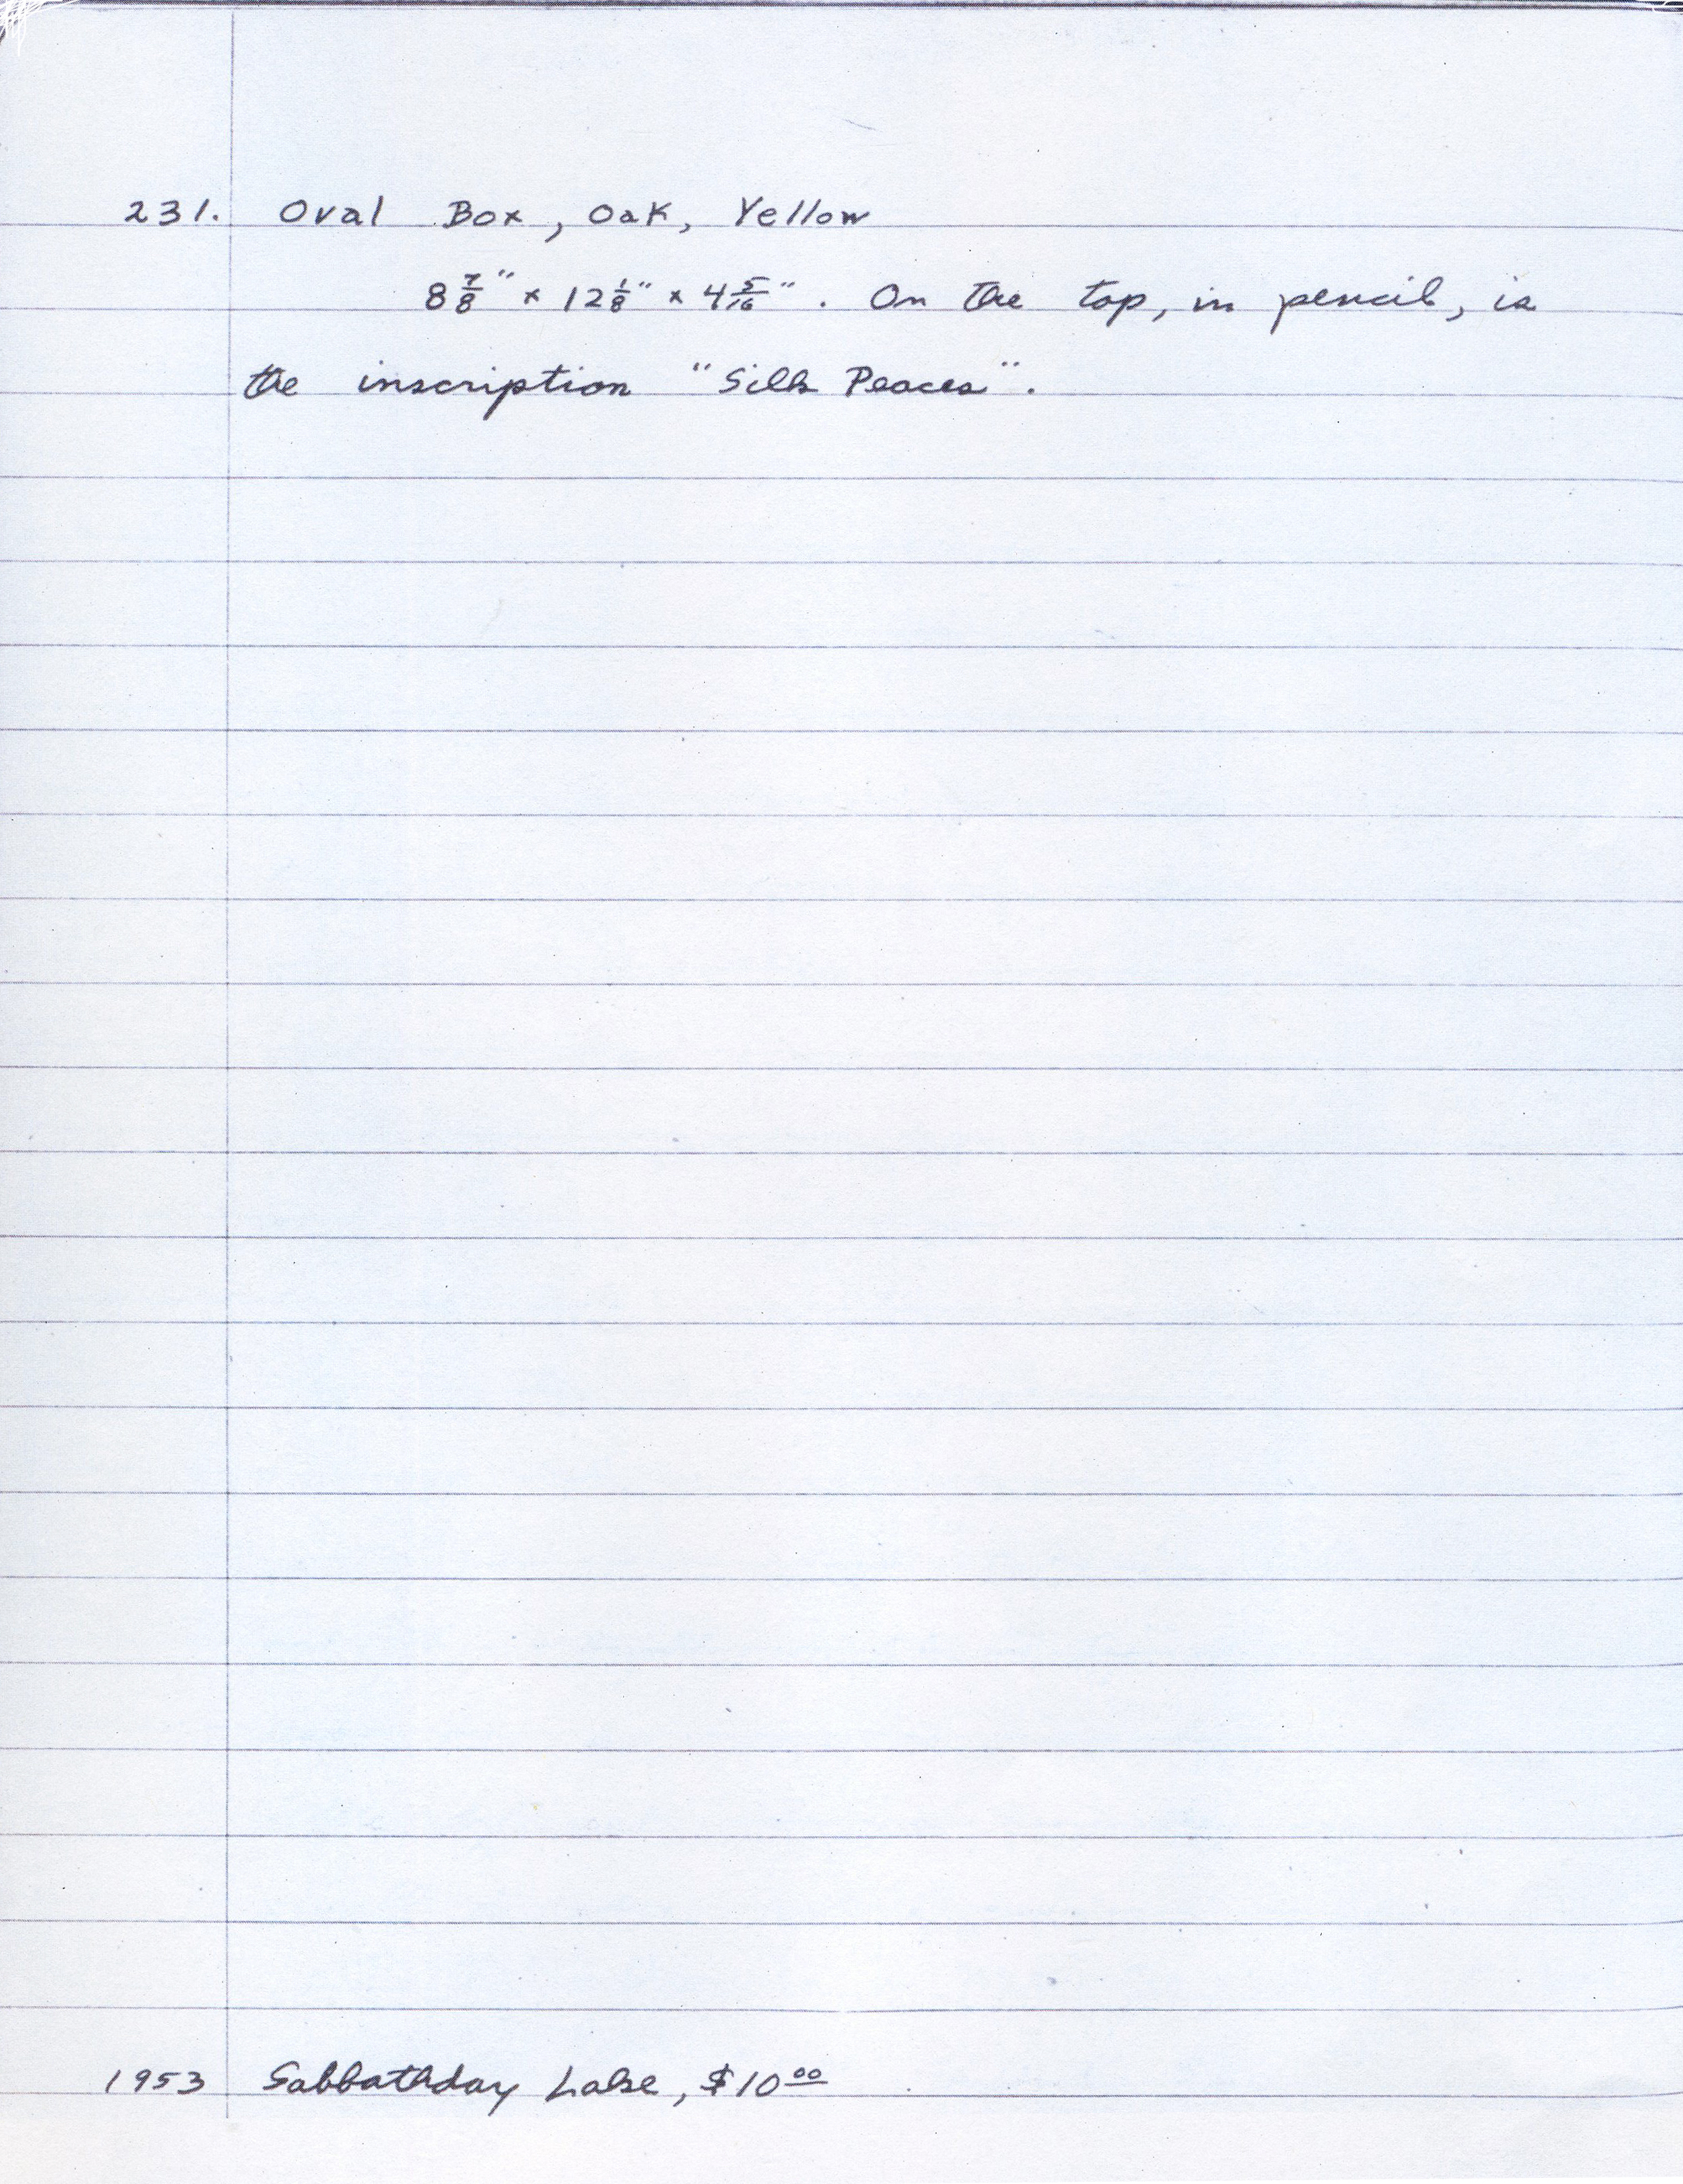 231. Oval Box, Oak, Yellow
8 7/8" x 12 1/8" x 4 5/16". On the top, in pencil, is
the inscription "Silk Peaces".
1953 Sabbathday Lake, $10.00